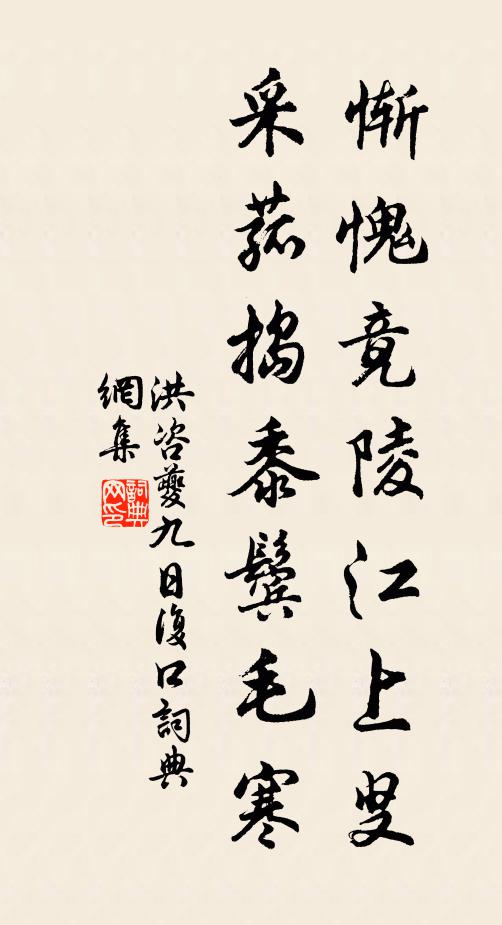 慚愧竟陵江上叟
采菰搗黍鬢毛寒
洪咨夔九日復口詞典
網集
詞典網印